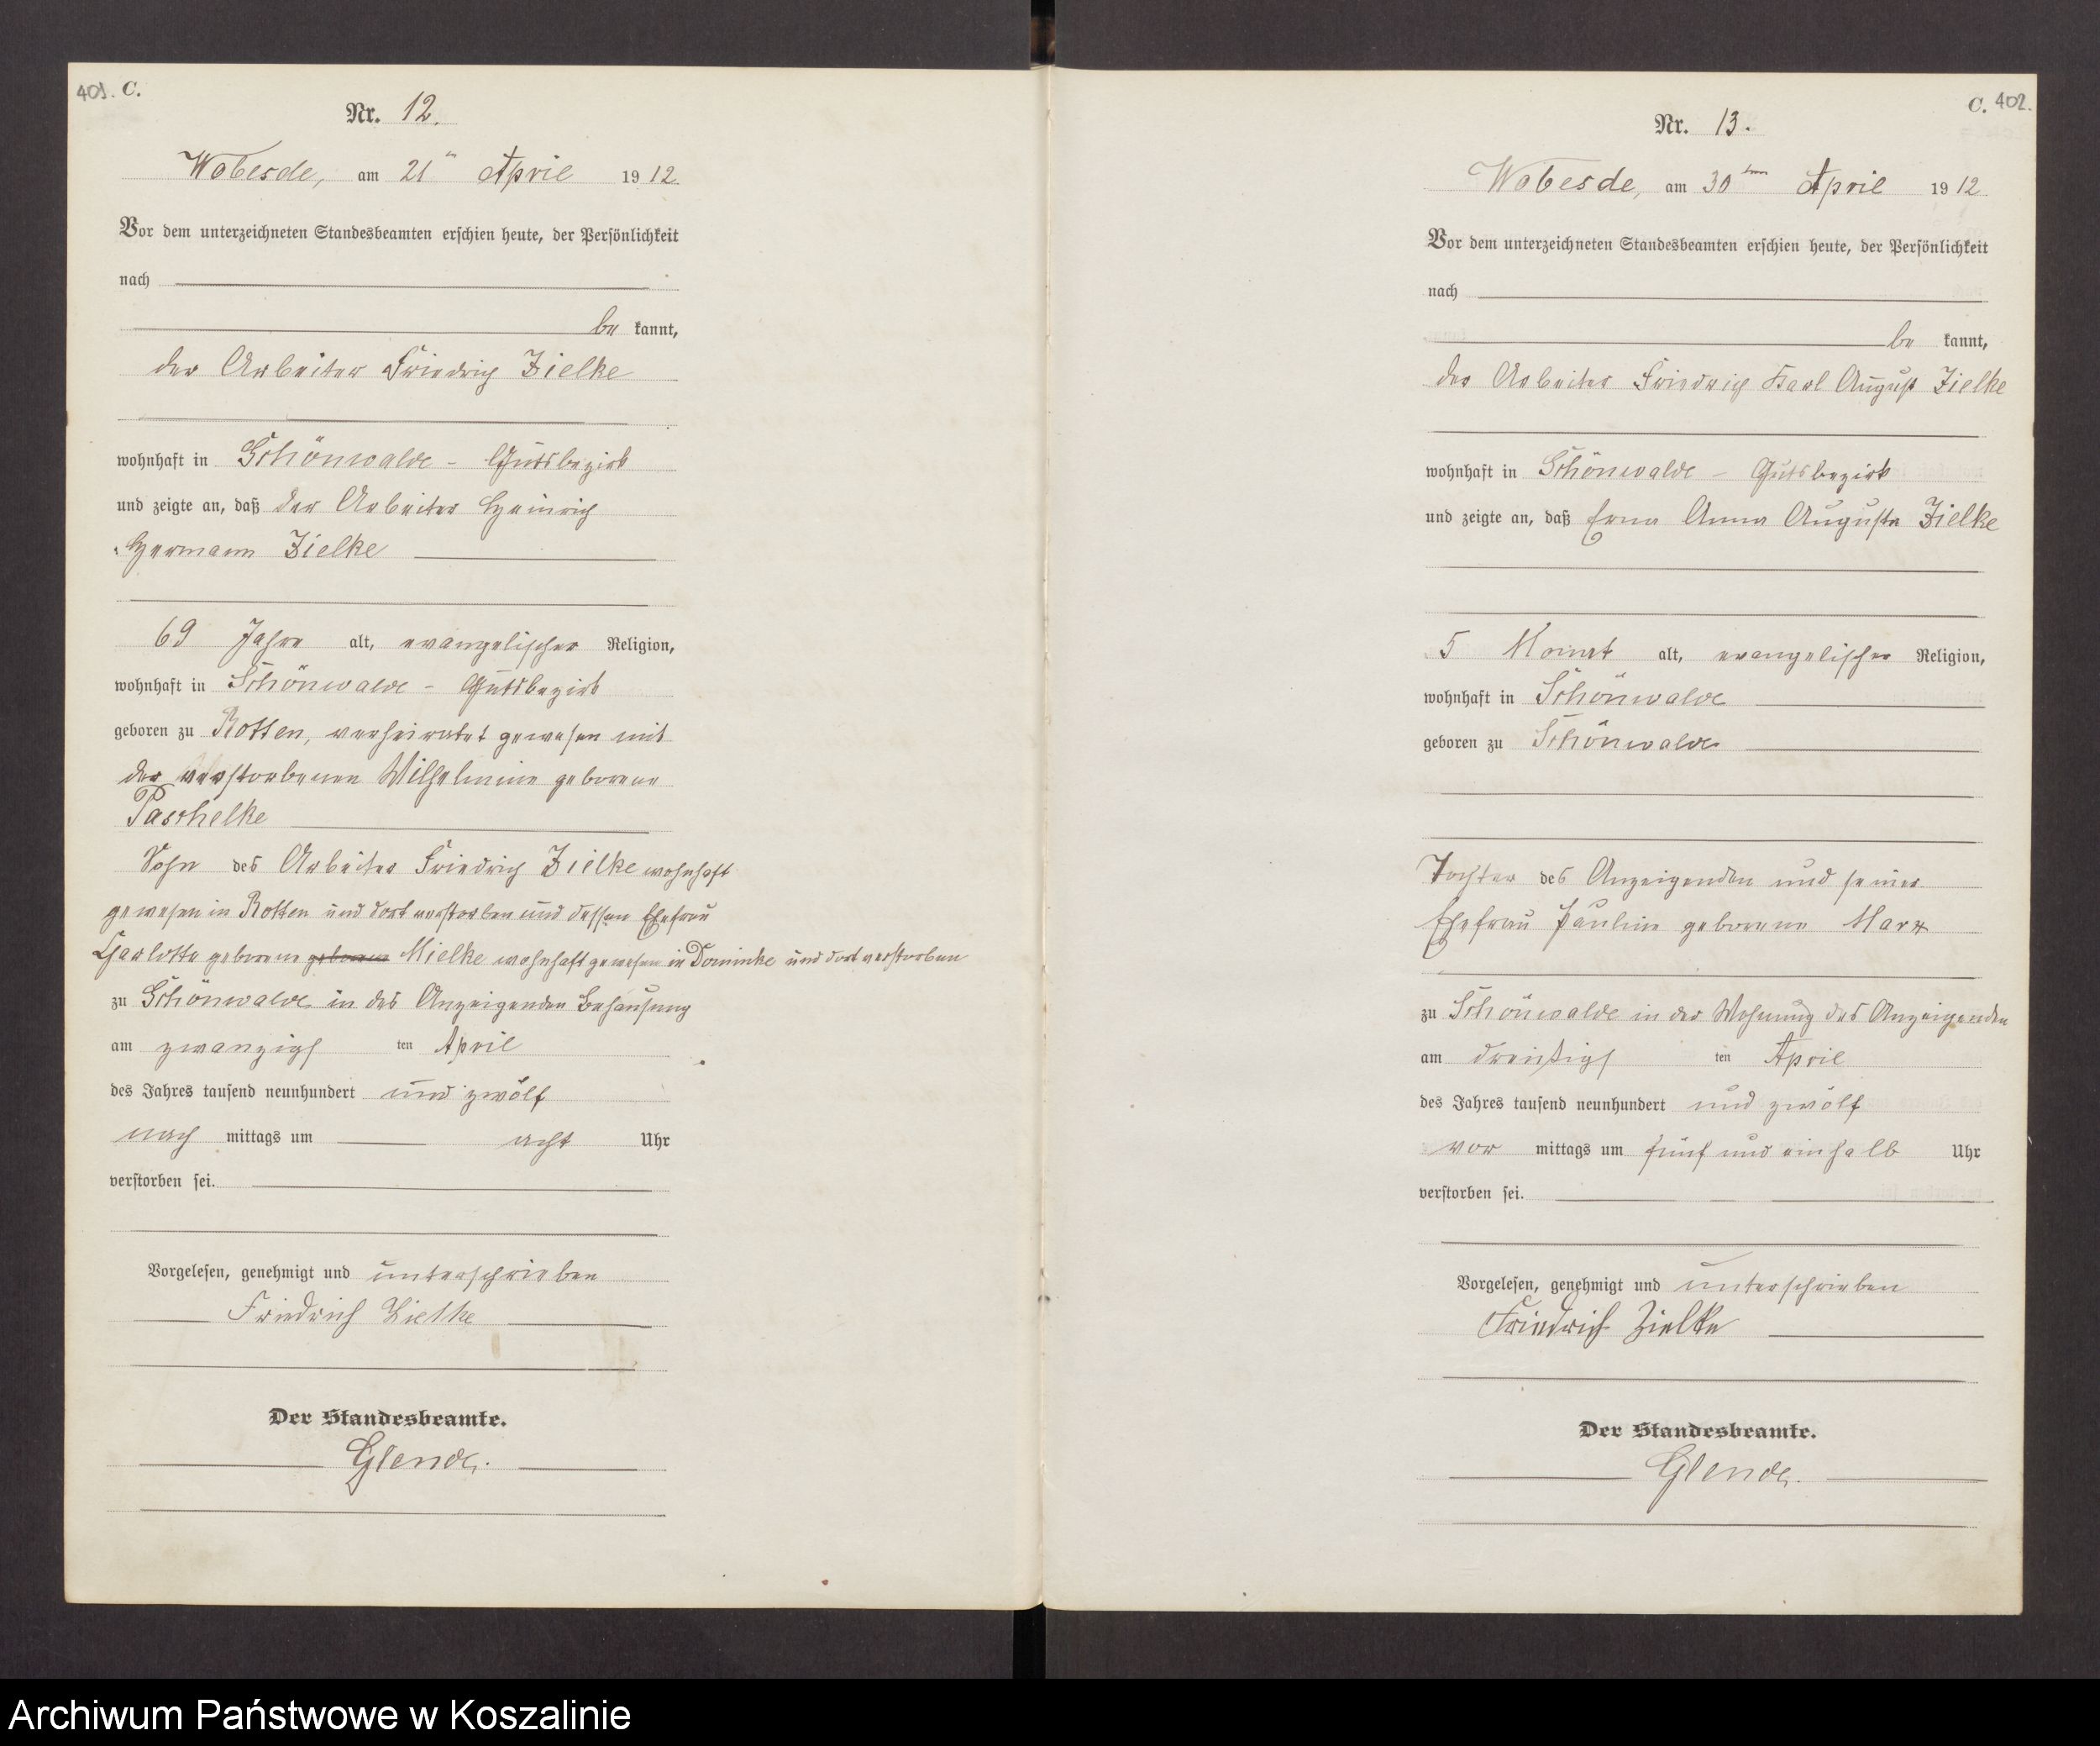 401. C.
Nr. 12.
Wobesde, am 21ten April 1912.
Vor dem unterzeichneten Standesbeamten erschien heute, der Persönlichkeit
nach
be kannt,
der Arbeiter Friedrich Zielke
wohnhaft in Schönwalde - Gutsbezirk
und zeigte an, daß der Arbeiter Heinrich
Hermann Zielke
69 Jahre alt, evangelischer Religion,
wohnhaft in Schönwalde - Gutsbezirk
geboren zu Rotten, verheiratet gewesen mit
der verstorbenen Wilhelmine geborene
Paschelke
Sohn des Arbeiter Friedrich Zielke wohnhaft
gewesen in Rotten und dort verstorben und dessen Ehefrau
Charlotte geborene geborene Mielke wohnhaft gewesen in Dominke und dort verstorben
zu Schönwalde in des Anzeigenden Behausung
am zwanzigs ten April
des Jahres tausend neunhundert und zwölf
nach mittags um acht Uhr
verstorben sei.
Vorgelesen, genehmigt und unterschrieben
Friedrich Zielke
Der Standesbeamte.
Glende.
C. 402.
Nr. 13.
Wobesde, am 30ten April 1912.
Vor dem unterzeichneten Standesbeamten erschien heute, der Persönlichkeit
nach
be kannt,
der Arbeiter Friedrich Karl August Zielke
wohnhaft in Schönwalde - Gutsbezirk
und zeigte an, daß Erna Anna Auguste Zielke
5 Monat alt, evangelischer Religion,
wohnhaft in Schönwalde
geboren zu Schönwalde
Tochter des Anzeigenden und seiner
Ehefrau Pauline geborene Marx
zu Schönwalde in der Wohnung des Anzeigenden
am dreißigs ten April
des Jahres tausend neunhundert und zwölf
vor mittags um fünf und einhalb Uhr
verstorben sei.
Vorgelesen, genehmigt und unterschrieben
Friedrich Zielke
Der Standesbeamte.
Glende.
Archiwum Państwowe w Koszalinie